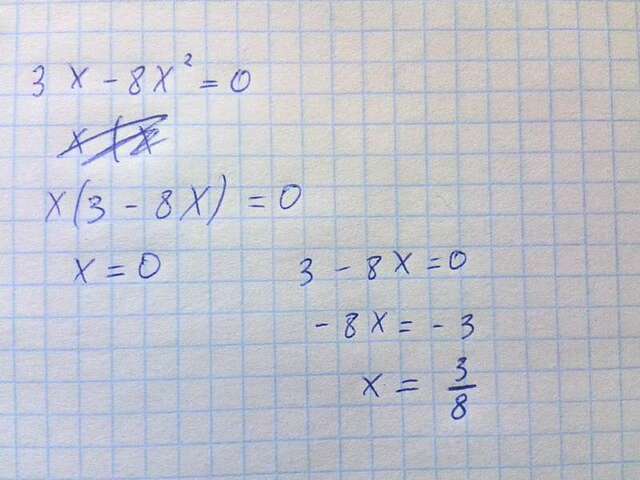 3x - 8x² = 0
x(3 - 8x) = 0
x = 0
3 - 8x = 0
-8x = -3
x = 3/8